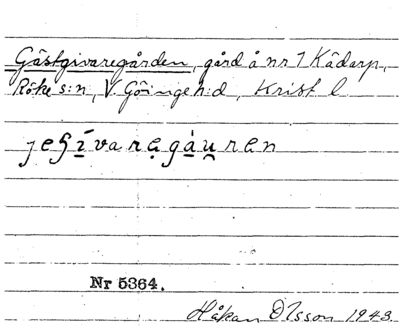 Gästgivaregården, gård å nr 7 Kädarp,
Röke s:n, V. Göinge h:d, Krist l
jeʃīvarẹgá̱u̯ren
Nr 5364.
Håkan Olsson 1943.